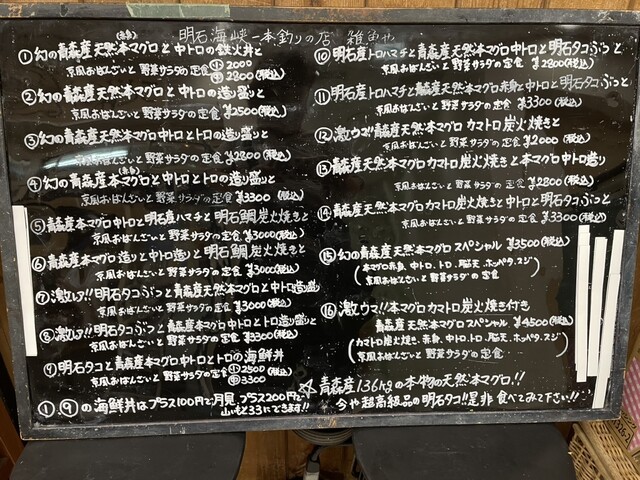 明石海峡一本釣りの店 雑魚や
(赤身)
①幻の青森産天然本マグロと中トロの鉄火丼と
京風おばんざいと野菜サラダの定食 ㊤2000
㊥2800(税込)
②幻の青森産天然本マグロと中トロの造り盛りと
京風おばんざいと野菜サラダの定食 ¥2500(税込)
③幻の青森産天然本マグロ中トロとトロの造り盛りと
京風おばんざいと野菜サラダの定食 ¥2800(税込)
(赤身)
④幻の青森産本マグロと中トロとトロの造り盛りと
京風おばんざいと野菜サラダの定食 ¥3300(税込)
⑤青森産本マグロ中トロと明石産ハマチと明石鯛炭火焼きと
京風おばんざいと野菜サラダの定食 ¥3000(税込)
⑥青森産本マグロ造りと中トロ造りと明石鯛炭火焼きと
京風おばんざいと野菜サラダの定食 ¥3000(税込)
⑦激レア!!明石タコぶつと青森産天然本マグロと中トロ造り盛り
京風おばんざいと野菜サラダの定食 ¥3000(税込)
⑧激レア!!明石タコぶつと青森産本マグロ中トロとトロ造り盛りと
京風おばんざいと野菜サラダの定食 ¥3300(税込)
⑨明石タコと青森産本マグロ中トロとトロの海鮮丼
京風おばんざいと野菜サラダの定食 ㊤2500
㊥3300(税込)
①,⑨の海鮮丼はプラス100円で月見、プラス200円で
山いもとろろにできます!!
⑩明石産トロハマチと青森産天然本マグロ中トロと明石タコぶつと
京風おばんざいと野菜サラダの定食 ¥2800(税込)
⑪明石産トロハマチと青森産天然本マグロ赤身と中トロと明石タコぶつと
京風おばんざいと野菜サラダの定食 ¥3300(税込)
⑫激ウマ!!青森産天然本マグロカマトロ炭火焼きと
京風おばんざいと野菜サラダの定食 ¥2000(税込)
⑬青森産天然本マグロカマトロ炭火焼きと本マグロ中トロ造り
京風おばんざいと野菜サラダの定食 ¥2800(税込)
⑭青森産天然本マグロカマトロ炭火焼きと中トロと明石タコぶつと
京風おばんざいと野菜サラダの定食 ¥3300(税込)
⑮幻の青森産天然本マグロスペシャル ¥3500(税込)
(本マグロ赤身、中トロ、トロ、脳天、ホッペタ、スジ)
京風おばんざいと野菜サラダの定食
⑯激ウマ!!本マグロカマトロ炭火焼き付き
青森産天然本マグロスペシャル ¥4500(税込)
(カマトロ炭焼き、赤身、中トロ、トロ、脳天、ホッペタ、スジ)
京風おばんざいと野菜サラダの定食
☆青森産136kgの本物の天然本マグロ!!
今や超高級品の明石タコ!!是非食べてみて下さい!!